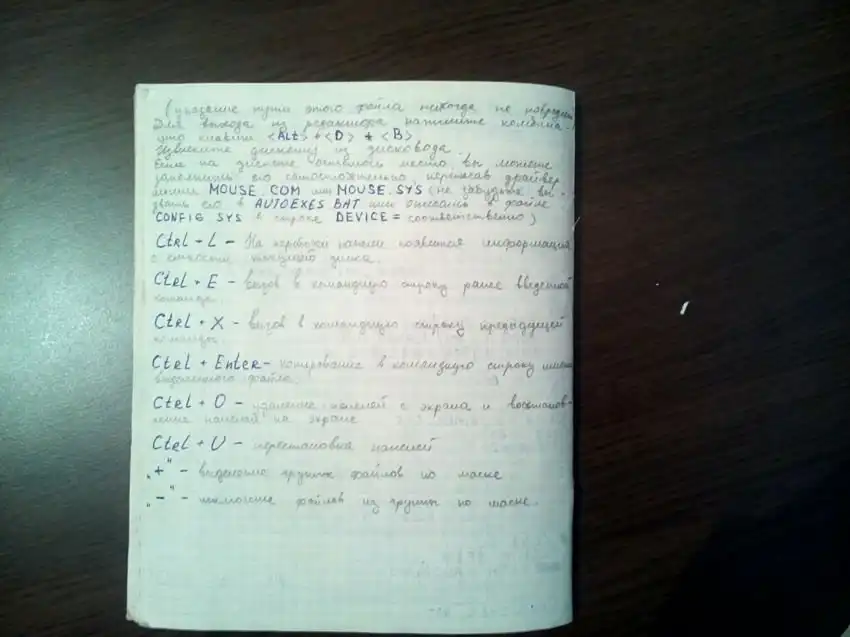 (указание пути этого файла никогда не повредит)
Для выхода из редактора нажмите комбина-
цию клавиш <Alt> + <D> + <B>
Извлеките дискету из дисковода.
Если на дискете осталось место, вы можете
заполнить его самостоятельно, переписав драйвер
мыши MOUSE.COM или MOUSE.SYS (не забудьте вы-
звать его в AUTOEXES BAT или описать в файле
CONFIG SYS в строке DEVICE = соответственно)
Ctrl + L - На панели появится информация
о емкости текущего диска.
Ctrl + E - вызов в командную строку ранее введенной
команды.
Ctrl + X - вызов в командную строку предыдущей
команды.
Ctrl + Enter - копирование в командную строку имени
выделенного файла.
Ctrl + O - удаление панелей с экрана и восстанов-
ление панелей на экране
Ctrl + U - перестановка панелей
"+" - выделение группы файлов по маске
"-" - файлов из группы по маске.